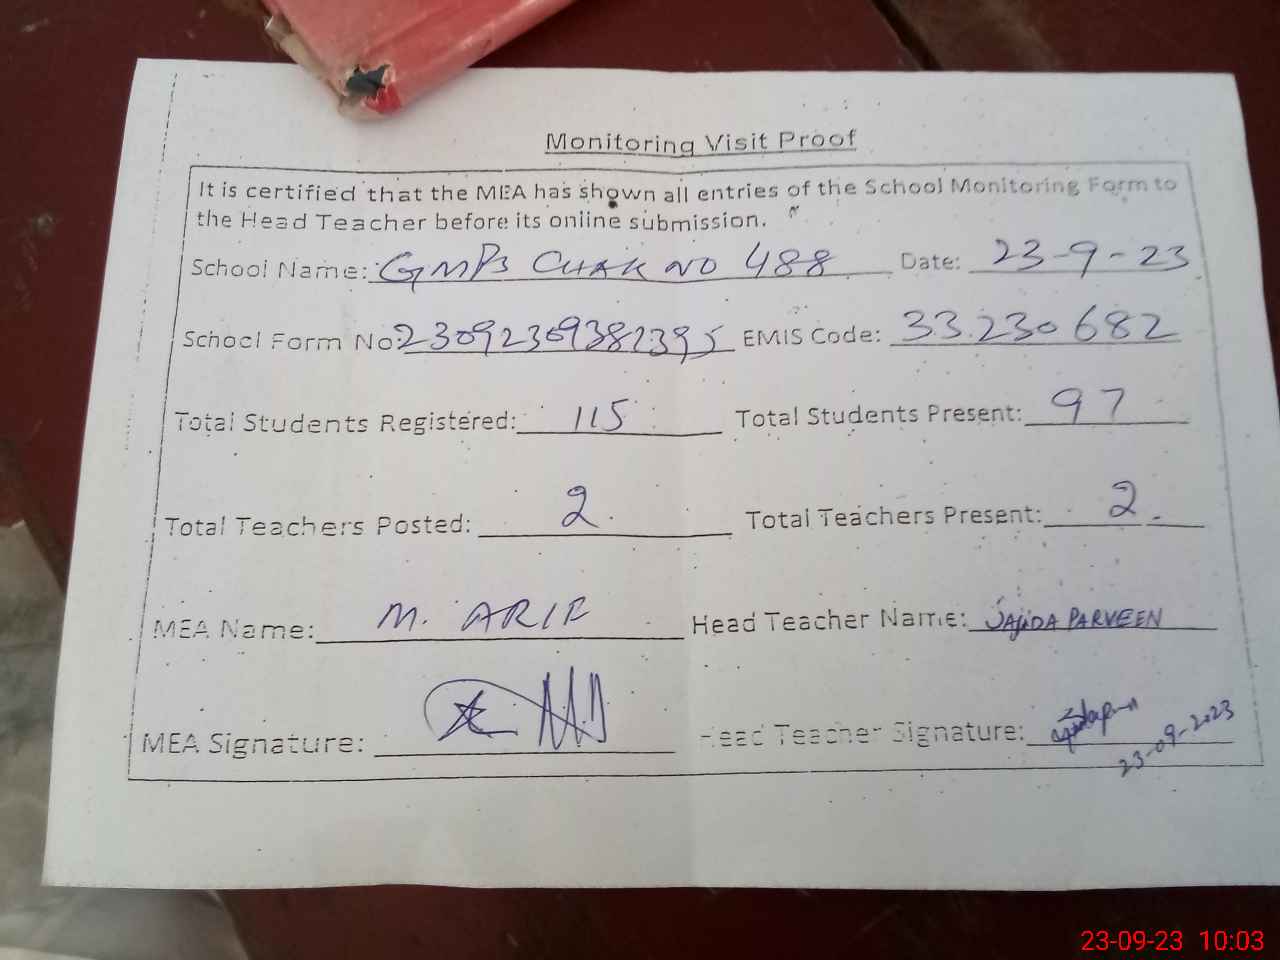 Monitoring Visit Proof
It is certified that the MEA has shown all entries of the School Monitoring Form to
the Head Teacher before its online submission.
School Name: GMPS CHAK NO 488 Date: 23-9-23
School Form No: 23092309382395 EMIS Code: 33230682
Total Students Registered: 115 Total Students Present: 97
Total Teachers Posted: 2 Total Teachers Present: 2
MEA Name: M. ARIF Head Teacher Name: SAJIDA PARVEEN
MEA Signature: Head Teacher Signature:
23-09-2023
23-09-23 10:03